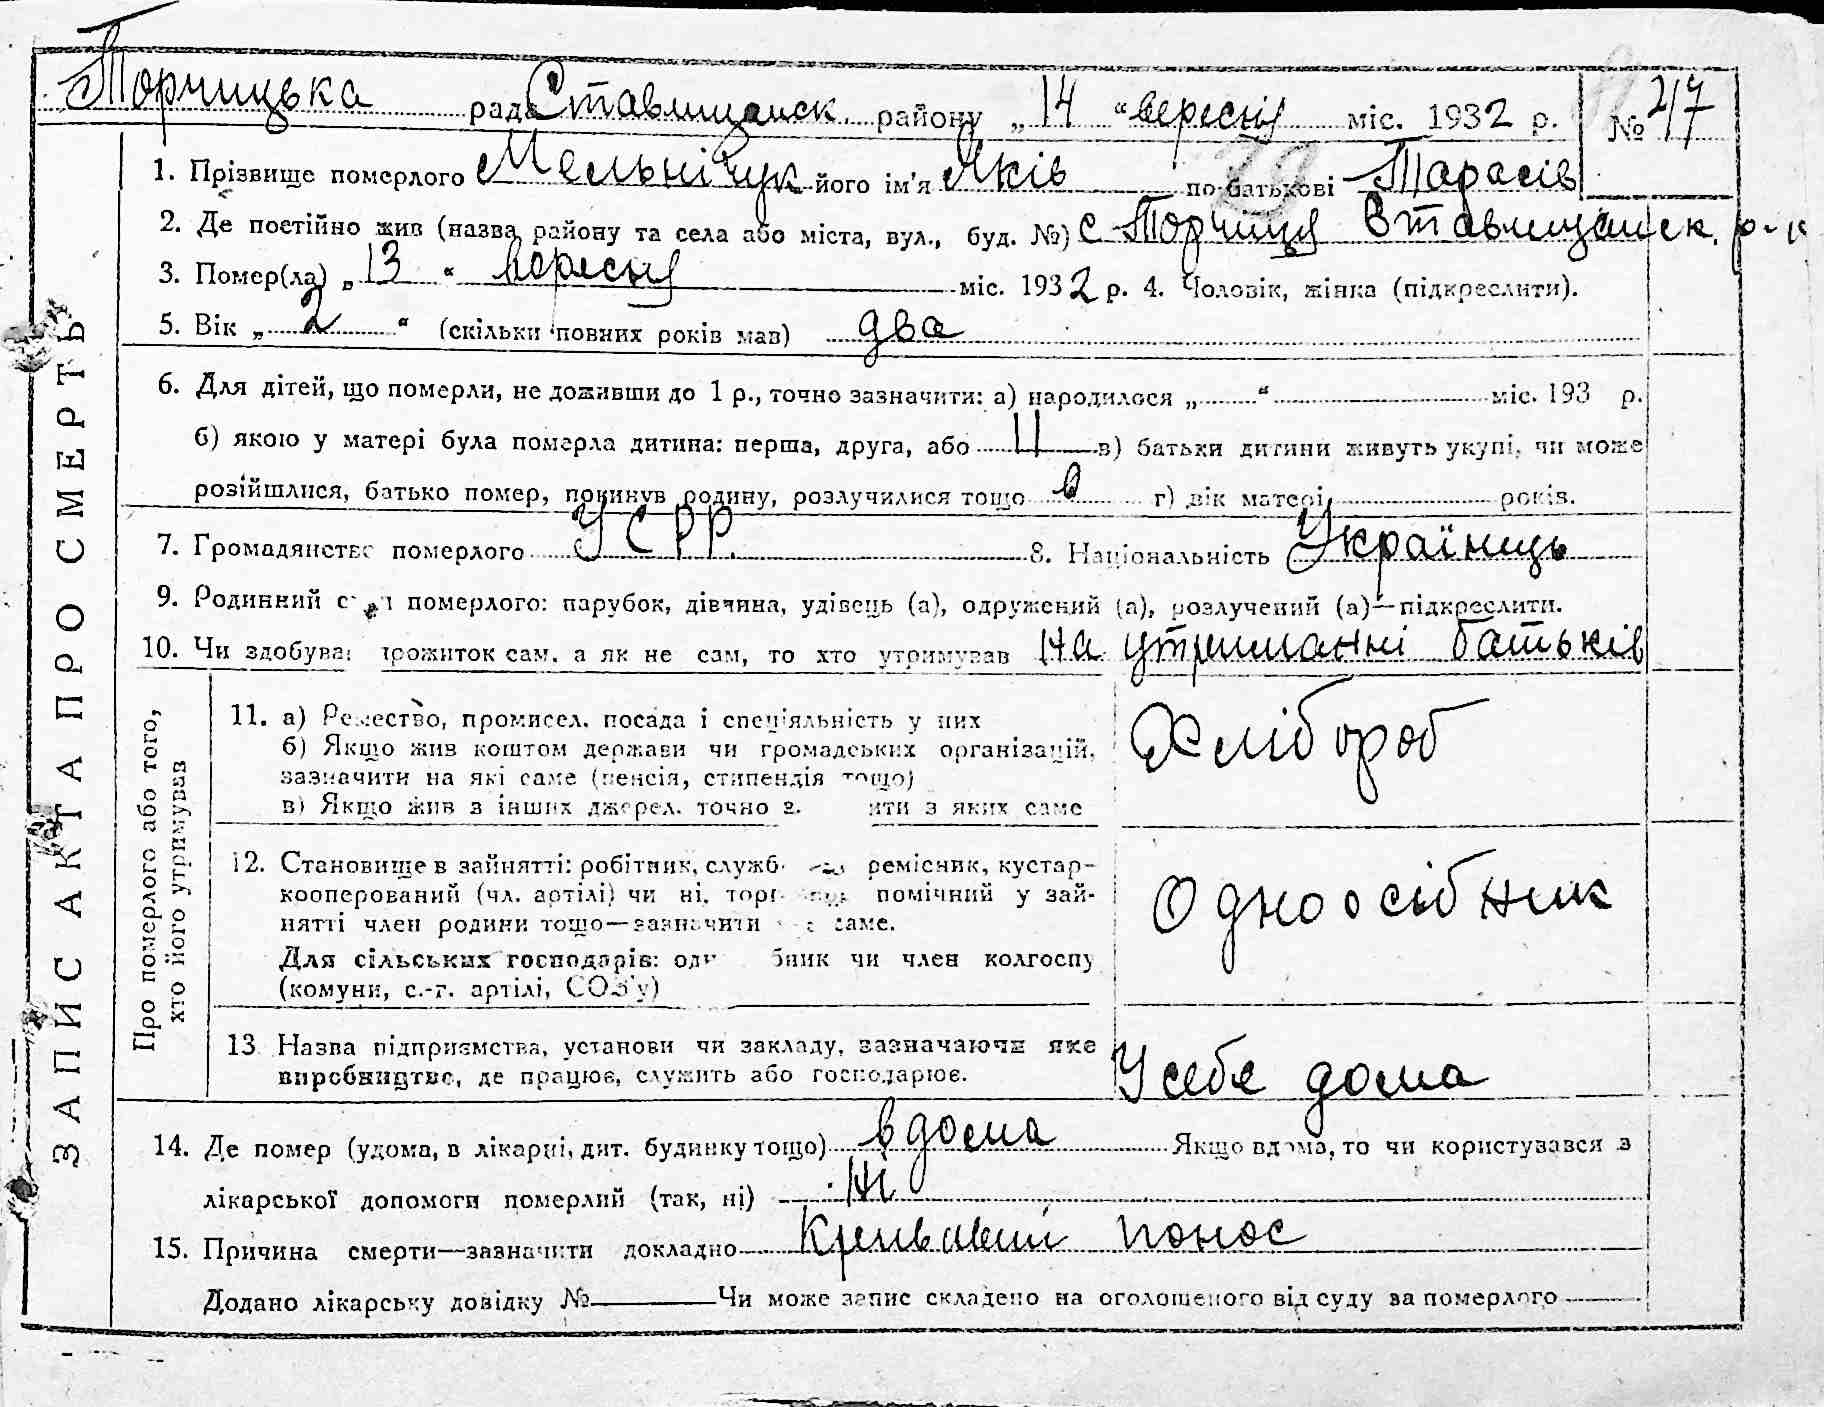 Торчицька рада Ставищанск. району „14“ вересня міс. 1932 р. № 217
1. Прізвище померлого Мельнічук його ім'я Яків по-батькові Тарасів
2. Де постійно жив (назва району та села або міста, вул., буд. №) с Торчиця Ставищанск. р-к
3. Помер(ла) „13“ вересня міс. 1932 р. 4. Чоловік, жінка (підкреслити).
5. Вік „2“ (скільки повних років мав) два
6. Для дітей, що померли, не доживши до 1 р., точно зазначити: а) народилося „ “ міс. 193 р.
б) якою у матері була померла дитина: перша, друга, або в) батьки дитини живуть укупі, чи може
розійшлися, батько помер, покинув родину, розлучилися тощо в г) вік матері років.
7. Громадянство померлого УСРР. 8. Національність Українець
9. Родинний померлого: парубок, дівчина, удівець (а), одружений (а), розлучений (а)—підкреслити.
10. Чи здобував прожиток сам, а як не сам, то хто утримував на утриманні батьків
ЗАПИС АКТА ПРО СМЕРТЬ
Про померлого або того,
хто його утримував
11. а) Ремество, промисел, посада і спеціяльність у них
б) Якщо жив коштом держави чи громадських організацій,
зазначити на які саме (пенсія, стипендія тощо)
в) Якщо жив з інших джерел, точно з. ити з яких саме
Хлібороб
12. Становище в зайнятті: робітник, служб ремісник, кустар-
кооперований (чл. артілі) чи ні, торг помічний у зай-
нятті член родини тощо—зазначити саме.
Для сільських господарів: од бник чи член колгоспу
(комуни, с.-г. артілі, СОЗ'у)
Одноосібник
13 Назва підприємства, установи чи закладу, зазначаючи яке
виробництво, де працює, служить або господарює.
У себе дома
14. Де помер (удома, в лікарні, дит. будинку тощо) вдома Якщо вдома, то чи користувався з
лікарської допомоги померлий (так, ні) Ні
15. Причина смерти—зазначити докладно Кривавий понос
Додано лікарську довідку № — Чи може запис складено на оголошеного від суду за померлого —